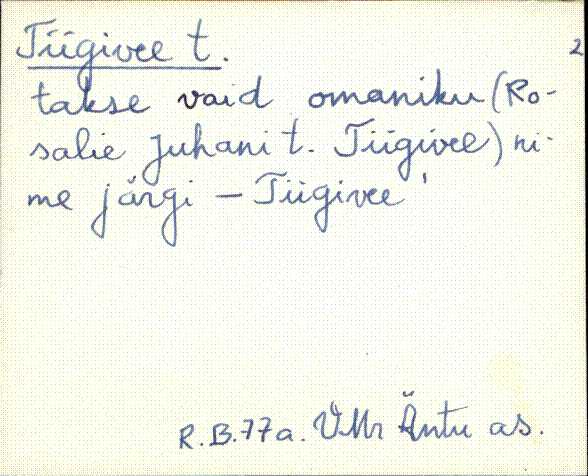 Tiigivee t.
2
takse vaid omaniku (Ro-
salie Juhani t. Tiigivee) ni-
me järgi – Tiigivee'
R.B.77a. VMr Äntu as.